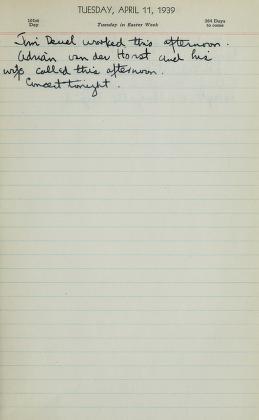 TUESDAY, APRIL 11, 1939
101st Day
Tuesday in Easter Week
264 Days to come
Jim Deuel worked this afternoon.
Adrian van der Horst and his
wife called this afternoon.
Concert tonight.